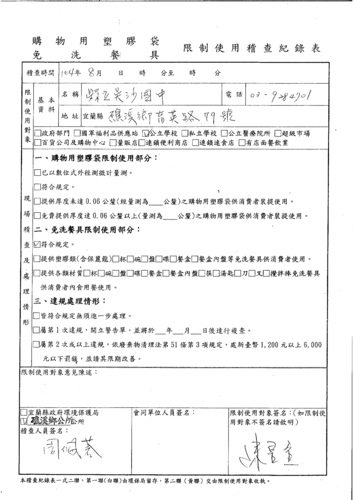 購物用塑膠袋
免洗餐具
限制使用稽查紀錄表
稽查時間 104年 8月 日 時 分至 時 分
限制使用對象
基本資料
名稱 縣立吳沙國中
電話 03-9284901
地址 宜蘭縣 礁溪鄉育英路 號
□政府部門 □國軍福利品供應站 ☑公立學校 □私立學校 □公立醫療院所 □超級市場
□百貨公司及購物中心 □量販店 □連鎖便利商店 □連鎖速食店 □有店面餐飲業
現場稽查及處理情形
一、購物用塑膠袋限制使用部分：
□已以數位式外徑測微計量測。
□符合規定。
□提供厚度未達 0.06 公釐(經量測為 公釐)之購物用塑膠袋供消費者裝提使用。
□免費提供厚度達 0.06 公釐以上(量測為 公釐)之購物用塑膠袋供消費者裝提使用。
二、免洗餐具限制使用部分：
☑符合規定。
□提供塑膠類(含保麗龍)□杯□碗□盤□碟□餐盒□餐盒內盤等免洗餐具供消費者使用。
□提供各類材質□杯□碗□盤□碟□餐盒□餐盒內盤□筷□湯匙□刀□叉□攪拌棒免洗餐具
供消費者內食用餐使用。
三、違規處理情形：
□皆符合規定無須進一步處理。
□屬第 1 次違規，開立警告單，並將於 年 月 日後進行複查。
□屬第 2 次或以上違規，依廢棄物清理法第 51 條第 3 項規定，處新臺幣 1,200 元以上 6,000
元以下罰鍰，並請其限期改善。
限制使用對象意見陳述：
□宜蘭縣政府環境保護局
☑礁溪鄉公所 公所
稽查人員簽名：
會同單位人員簽名：
限制使用對象簽名：(如限制使
用對象不簽名請敘明)
本稽查紀錄表一式二聯，第一聯(白聯)由環保局留存，第二聯（黃聯）交由限制使用對象收執。